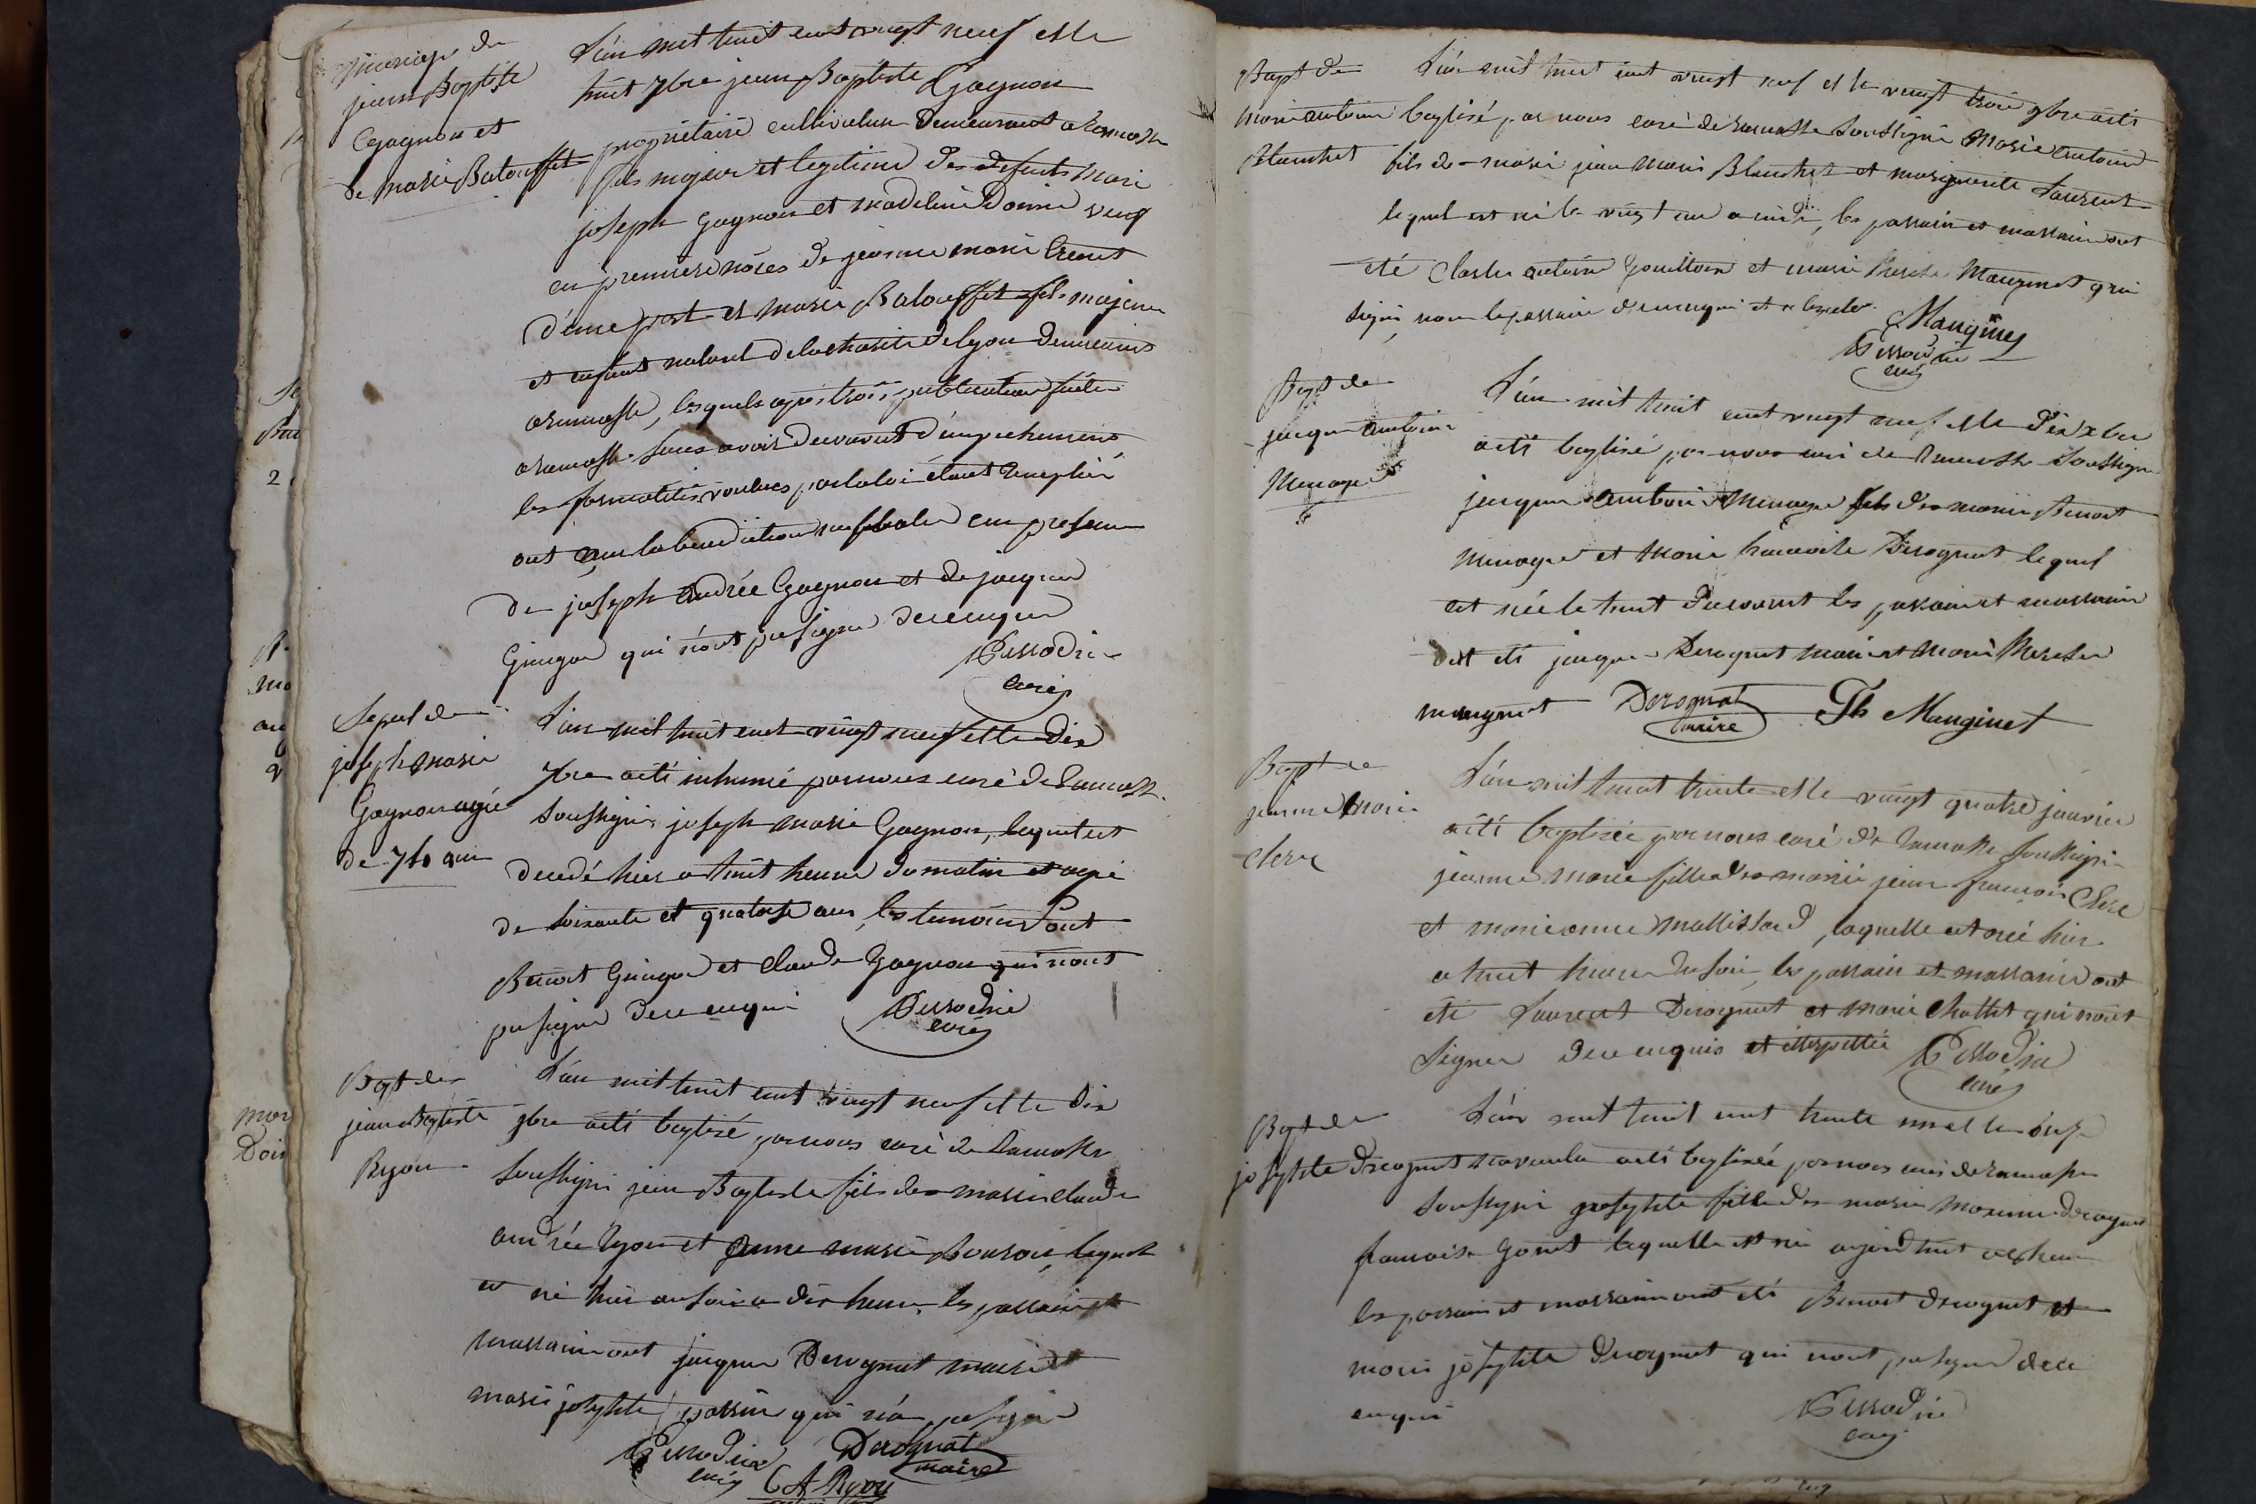 mariage de
jean Baptiste
Gagnon et
de marie Batouffet
L'an mil huit cent vingt neuf et le
huit 7bre jean Baptiste Gagnon
propriétaire cultivateur demeurant a ramasse
fils majeur et legitime des defunts marie
joseph Gagnon et madeleine Donné veuf
en premiere nôces de jeanne marie
d'une part et marie Batouffet fille majeure
et enfant naturel de la charité de lyon demeurant
a ramasse, lesquels apres trois publication faite
a ramasse sans avoir decouvert d'empechement
les formalités voulues par la loi étant remplié
ont reçu la benediction nuptiale en presence
de joseph andrée Gagnon et de jacque
Guigue qui n'ont pu signer de ce enquis
curé
Sepul de
joseph marie
Gagnon agée
de 74 ans
L'an mil huit cent vingt neuf et le dix
7bre a été inhumé par nous curé de Ramasse
soussigné joseph marie Gagnon, lequel est
decedé hier a huit heure du matin et agé
de soixante et quatorse ans, les temoins sont
Benoit Guigue et claude Gagnon qui n'ont
pu signer de ce enquis
curé
Bapt de
jean Baptiste
Ryon
L'an mil huit cent vingt neuf et le dix
9bre a été baptisé par nous curé de Ramasse
soussigné jean Baptiste fils de marié claude
andrée Ryon et jeanne marie lequel
est né hier au soir a dix heure, les parrain et
marraine ont jacque Derognat maire et
marie josephte qui n'a pu signer
curé
Derognat
maire
CA Ryon
Bapt de
marie antoine
Blanchet
L'an mil huit cent vingt neuf et le vingt trois 9bre a été
baptisé par nous curé de ramasse soussigné marie antoine
fils de marié jean marie Blanchet et marguerite Laurent
lequel est né le vingt un a midi, les parrain et marraine ont
été Charle antoine et marie therese Manginet qui
signé non le parrain de ce enquis et
Manginet
curé
Bapt de
jacque antoine
Menage
L'an mil huit cent vingt neuf et le dix xbre
a été baptisé par nous curé de Ramasse soussigné
jacque antoine Menage fils de marié Benoit
Menage et marie francoise Derognat lequel
est née le huit du courant les parrain et marraine
ont été jacque Derognat maire et marie therese
manginet
Derognat
maire
Th Manginet
Bapt de
jeanne marie
clerc
L'an mil huit trente et le vingt quatre janvier
a été baptisée par nous curé de Ramasse soussigné
jeanne marie fille de marié jean françois Clerc
et marie anne Mallissard, laquelle est née hier
a huit heure du soir, les parrain et marraine ont
été Laurent Derognat et marie Chattet qui n'ont
signer de ce enquis et interpellé
curé
Bapt de
josephte Derognat
L'an mil huit cent trente un et le onze
novembre a été baptisée par nous curé de ramasse
soussigné josephte fille de marié Derognat
francoise Gonet laquelle est née aujourd'huit
les parrain et marraine ont été Benoit Derognat et
marie josephte Derognat qui n'ont pu signer de ce
enquis
curé